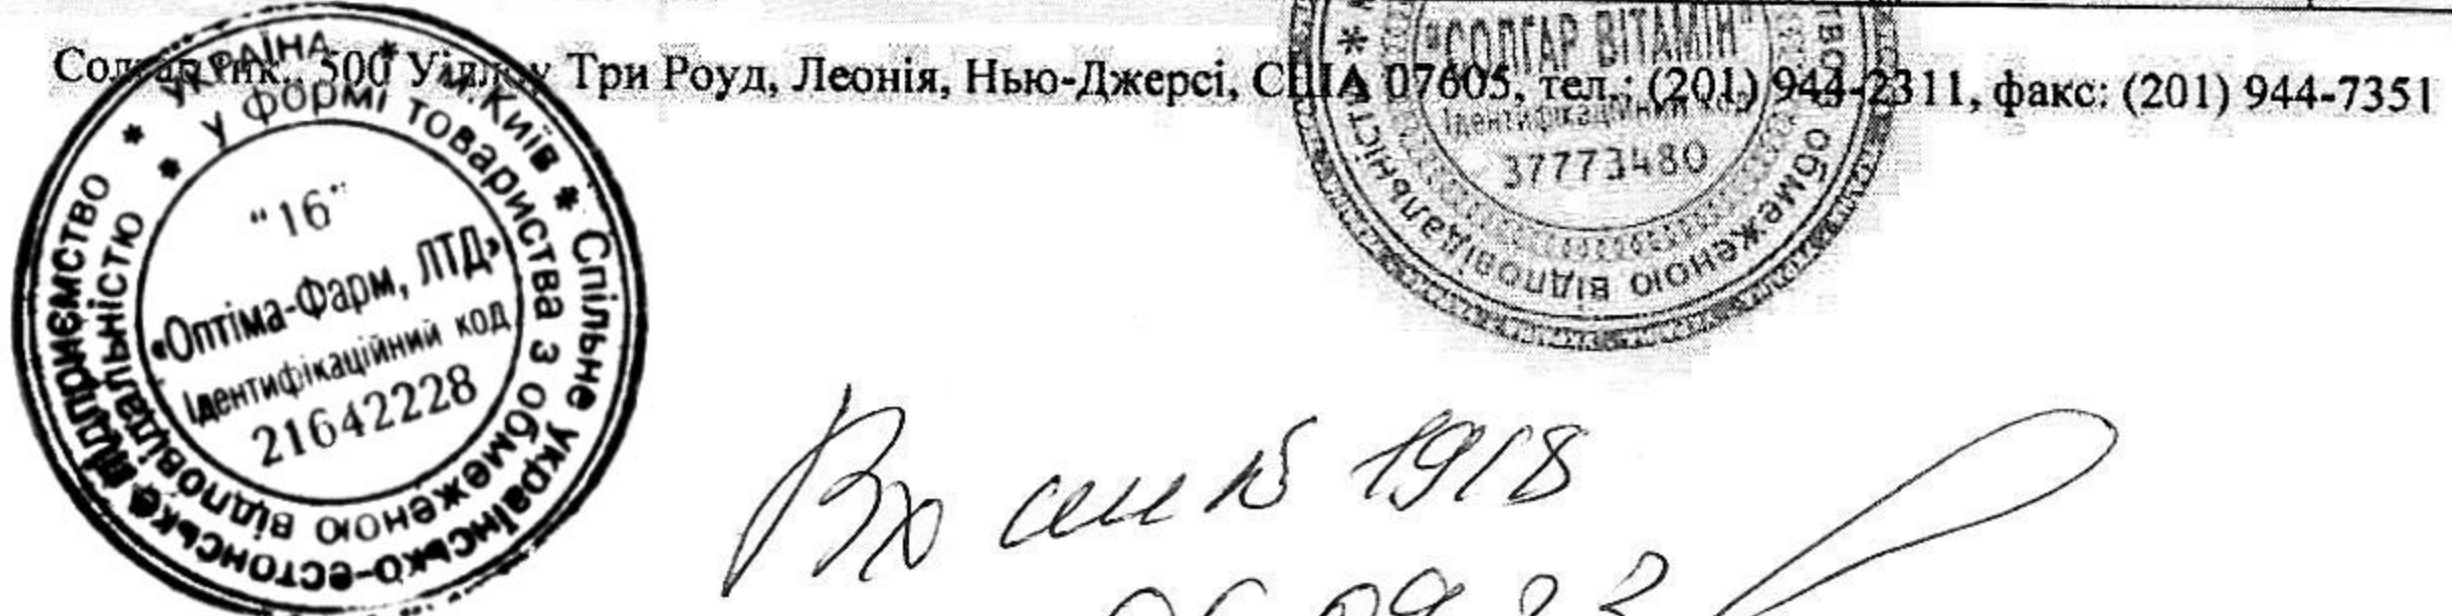 Солгар Інк., 500 Уіллоу Три Роуд, Леонія, Нью-Джерсі, США 07605, тел.: (201) 944-2311, факс: (201) 944-7351
* УКРАЇНА * м.Київ * Спільне українсько-естонське підприємство
* у формі товариства з обмеженою відповідальністю
"16"
«Оптіма-Фарм, ЛТД»
Ідентифікаційний код
21642228
"СОЛГАР ВІТАМІН"
Ідентифікаційний код
37773480
обмеженою відповідальністю *
Вх 1918
06.09.23